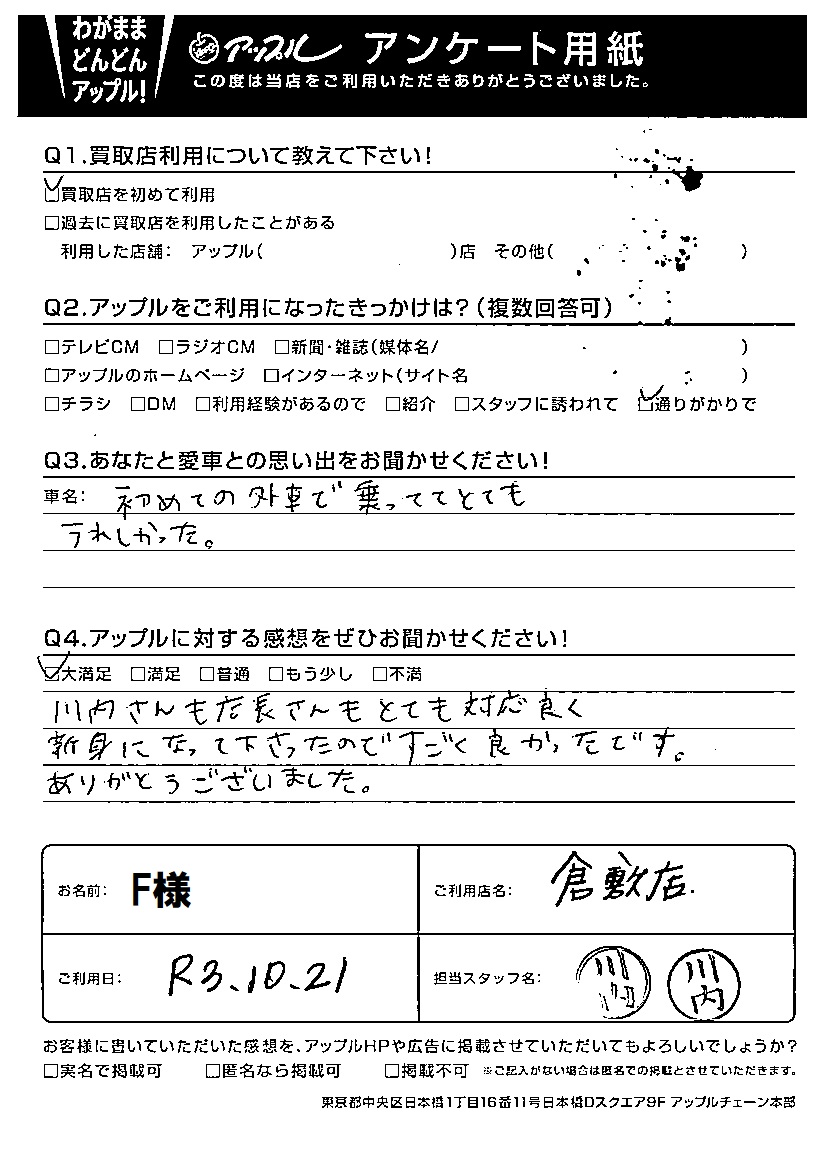 わがまま
どんどん
アップル!
アップル アンケート用紙
この度は当店をご利用いただきありがとうございました。
Q1.買取店利用について教えて下さい!
☑買取店を初めて利用
□過去に買取店を利用したことがある
利用した店舗: アップル( )店 その他( )
Q2.アップルをご利用になったきっかけは?(複数回答可)
□テレビCM □ラジオCM □新聞・雑誌(媒体名/ )
□アップルのホームページ □インターネット(サイト名 )
□チラシ □DM □利用経験があるので □紹介 □スタッフに誘われて ☑通りがかりで
Q3.あなたと愛車との思い出をお聞かせください!
車名: 初めての外車で乗っててとても
うれしかった。
Q4.アップルに対する感想をぜひお聞かせください!
☑大満足 □満足 □普通 □もう少し □不満
川内さんも店長さんもとても対応良く
新身になって下さったのですごく良かったです。
ありがとうございました。
お名前: F様
ご利用店名: 倉敷店.
ご利用日: R3.10.21
担当スタッフ名: 川内 川内
お客様に書いていただいた感想を、アップルHPや広告に掲載させていただいてもよろしいでしょうか?
□実名で掲載可 □匿名なら掲載可 □掲載不可 ※ご記入がない場合は匿名での掲載とさせていただきます。
東京都中央区日本橋1丁目16番11号日本橋Dスクエア9F アップルチェーン本部